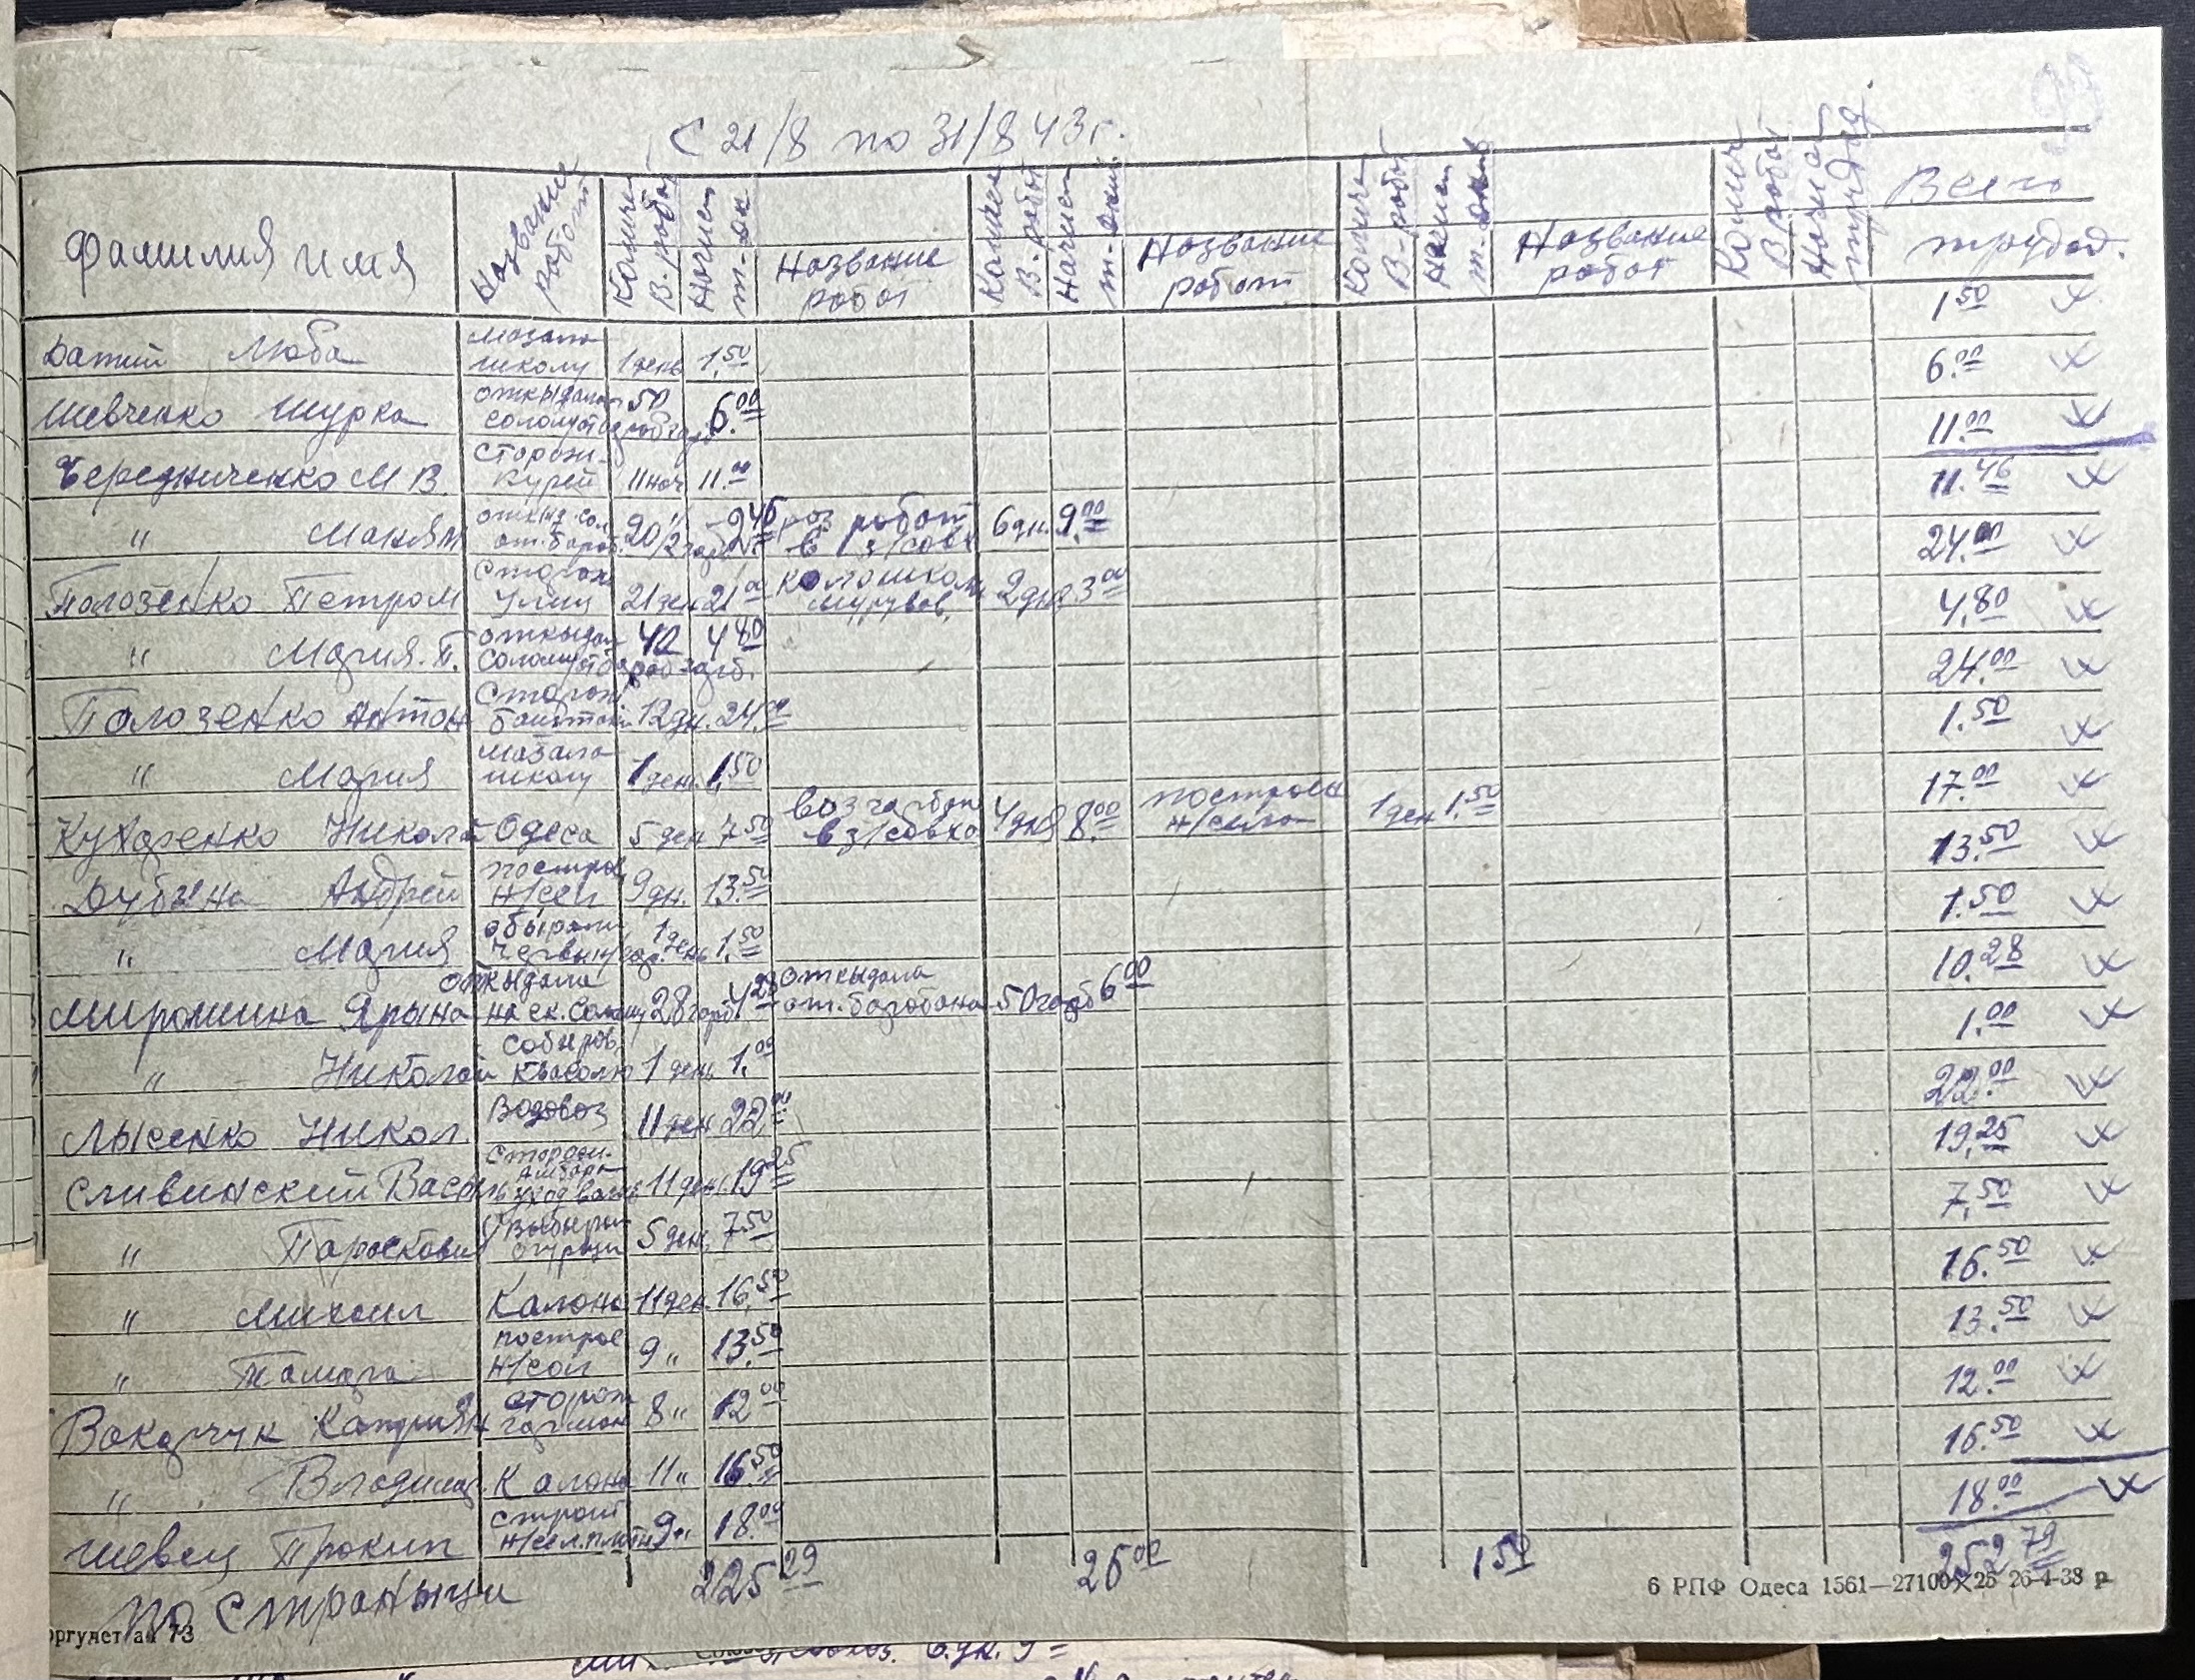 С 21/8 по 31/8 43 г.
Фамилия имя Название робот Количе В. робот Начисл т-дн. Название робот Количе В. робот Начисл т-дни. Название робот Количе В-робот Начисл т. дни Название робот Колич В робот Начисл трудод. Всего трудод.
Датий Люба мазала школу 1 день 1,50 1.50
Шевченко Шурка откыдала солому 50 6.00 6.00
Чередниченко М В. Сторож. Курей 11 ноч 11.00 11.00
" 20 2.46 роз робот в з/совх 6 дн. 9.00 11.46
Полозенко Петро Сторож 21 ден 21.00 2 дня 3.00 24.00
" Мария. П. откыдал солому 40 4.80 4,80
Полозенко Антон Сторож баштан 12 дн. 24.00 24.00
" Мария мазала школу 1 ден. 1,50 1.50
Кухаренко Никола Одеса 5 ден 7.50 воз гарбы в з/совхо 4 дня 8.00 построй н/сило 1 ден 1.50 17.00
Дубына Андрей построй н/сил 9 дн. 13.50 13.50
" Мария обырала 1 день 1.50 1.50
Мирошина Ярына откыдала на ск. солому 28 гарб 4.28 откыдала от. баробана 50 гарб 6.00 10.28
" Николай собиров. квасолю 1 день 1.00 1.00
Лысенко Никол. Водовоз 11 ден 22.00 22.00
Сливинский Васыль Сторож. амбара 11 ден. 19.25 19,25
" Парасковия Выбырал огурци 5 ден. 7.50 7,50
" Михаил Калона 11 ден. 16.50 16.50
" Тамара построй н/сил 9 " 13.50 13.50
Вакарчук сторож гарман 8 " 12.00 12.00
" Владимир Калона 11 " 16.50 16.50
Швец Прокип строит н/сил. 9 " 18.00 18.00
По страныци 225 29 26 00 1 50 252 79
6 РПФ Одеса 1561—27100×25 26-4-38 р